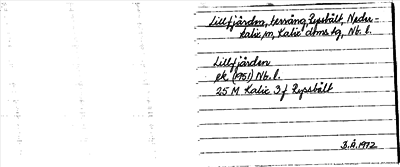 Lillfjärden, terräng, Repsbält, Neder-
kalix sn, Kalix doms tg, Nb. l.
Lillfjärden
ek (1951) Nb. l.
25 M Kalix 3 f Repsbält
3.8.1972